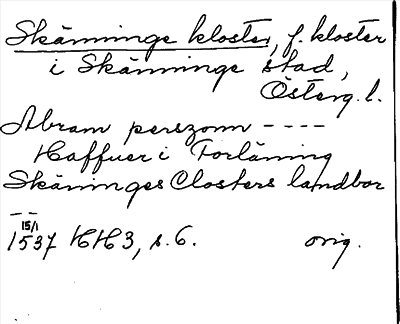 Skänninge kloster, f. kloster
i Skänninge stad,
Österg. l.
Abram perszonn ----
Haffuer i Forläning
Skäninges Closters landbor
--
15/1
1537 HH3, s. 6. orig.